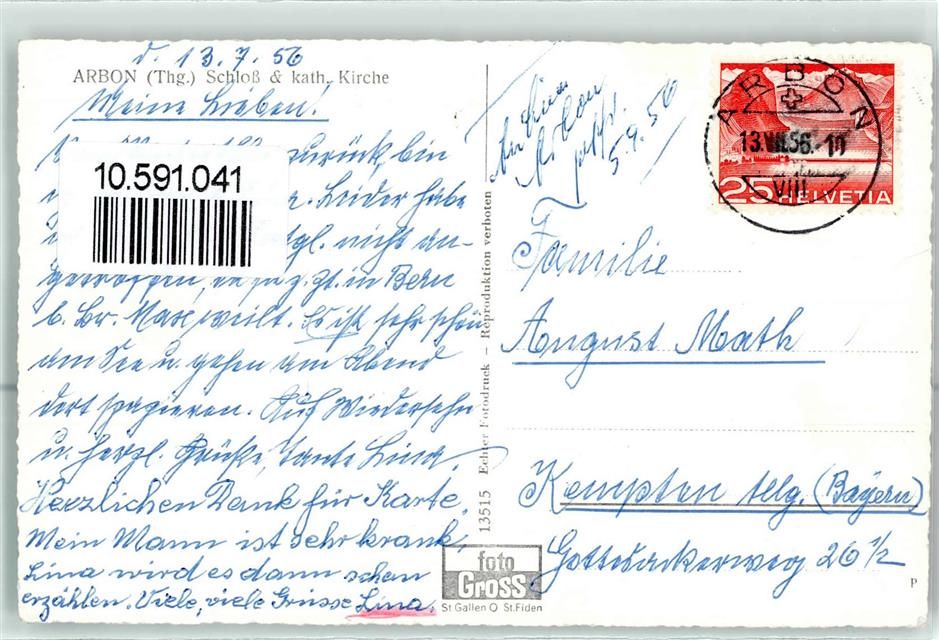 d. 13.7.56
ARBON (Thg.) Schloß & kath. Kirche
Meine Lieben!
zurück, bin
Leider habe
tgl. nicht an-
getroffen, da sie z. zt. in Bern
b. Br. Max weilt. Es ist sehr schön
am See u. gehen am Abend
dort spazieren. Auf Wiedersehn
u. herzl. Grüße, Tante Lina.
Herzlichen Dank für Karte.
Mein Mann ist sehr krank,
Lina wird es dann schon
erzählen. Viele, viele Grüsse Lina.
10.591.041
13515 Echter Fotodruck – Reproduktion verboten
foto
Gross
St Gallen O St. Fiden
An Lina
Arbon
5.9.56
ARBON
13.VII.56. 11
VIII
25 HELVETIA
Familie
August Math
Kempten Allg. (Bayern)
Gottesackerweg 26 1/2
P